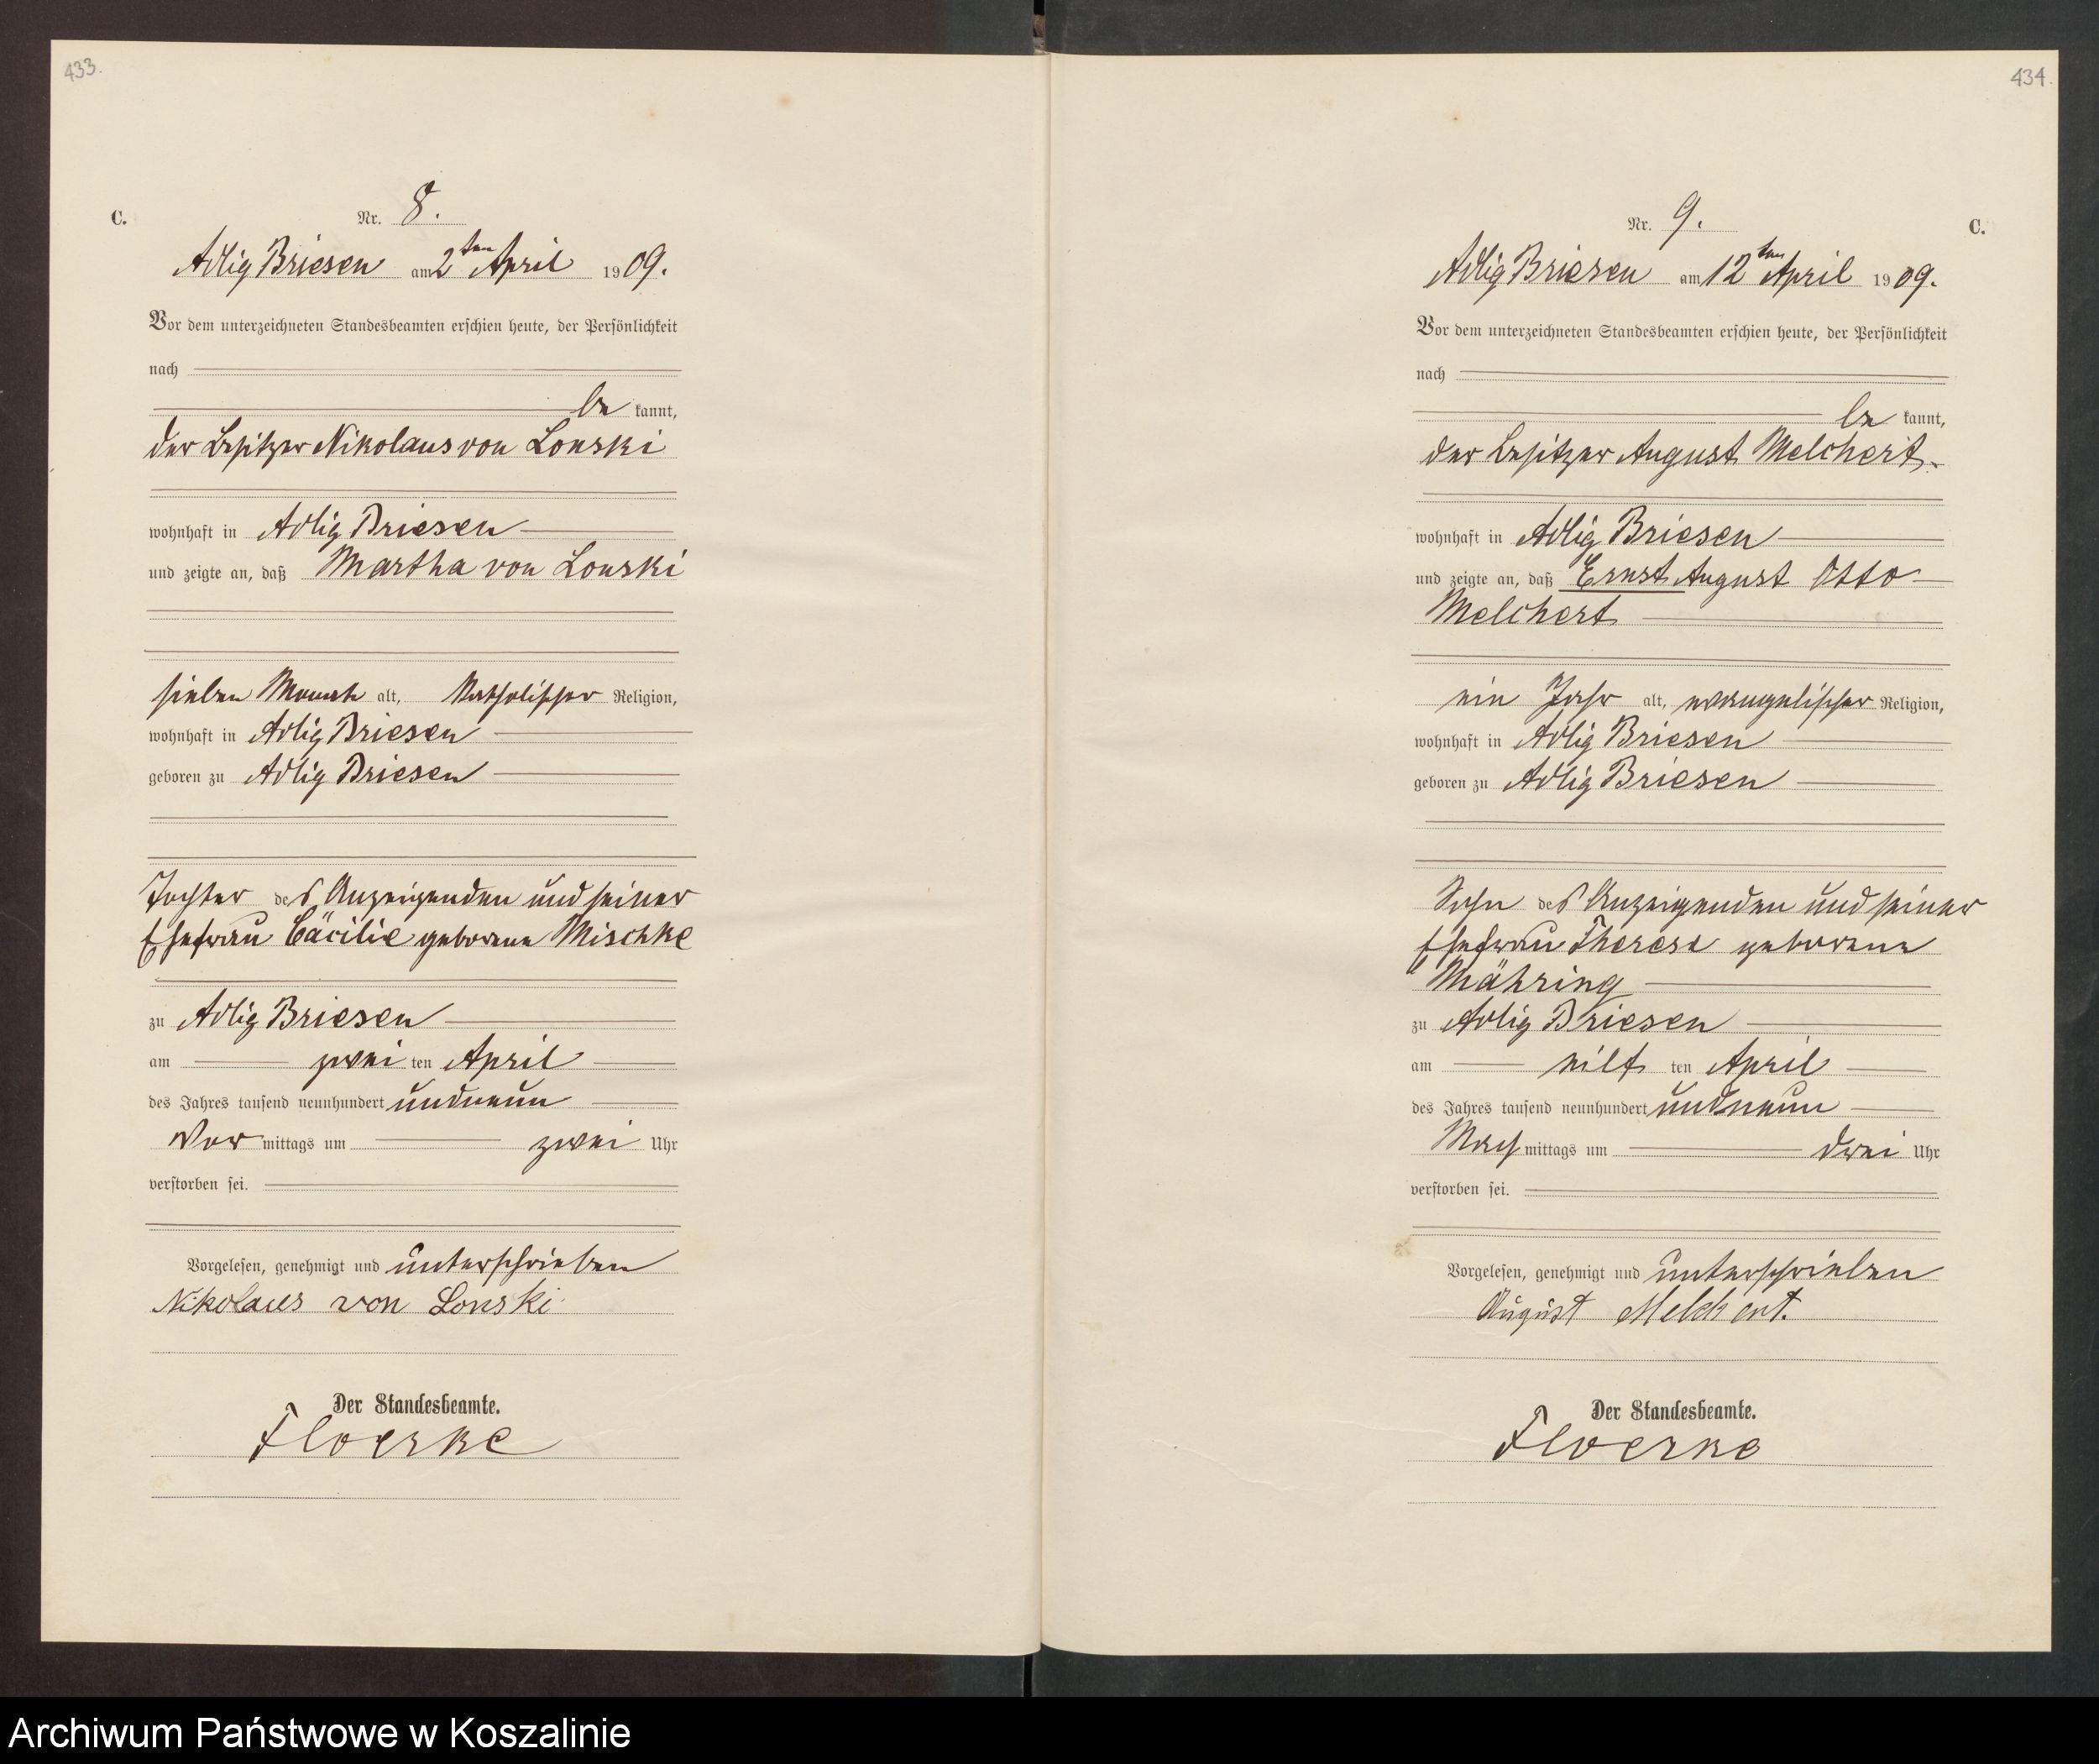 433.
C.
Nr. 8.
Adlig Briesen am 2ten April 1909.
Vor dem unterzeichneten Standesbeamten erschien heute, der Persönlichkeit
nach
be kannt,
der Besitzer Nikolaus von Lonski
wohnhaft in Adlig Briesen
und zeigte an, daß Martha von Lonski
sieben Monate alt, Katholischer Religion,
wohnhaft in Adlig Briesen
geboren zu Adlig Briesen
Tochter des Anzeigenden und seiner
Ehefrau Cäcilie geborene Mischke
zu Adlig Briesen
am zwei ten April
des Jahres tausend neunhundert undneun
Vor mittags um zwei Uhr
verstorben sei.
Vorgelesen, genehmigt und unterschrieben
Nikolaus von Lonski
Der Standesbeamte.
Floerke
434.
Nr. 9.
C.
Adlig Briesen am 12ten April 1909.
Vor dem unterzeichneten Standesbeamten erschien heute, der Persönlichkeit
nach
be kannt,
der Besitzer August Melchert
wohnhaft in Adlig Briesen
und zeigte an, daß Ernst August Otto
Melchert
ein Jahr alt, evangelischer Religion,
wohnhaft in Adlig Briesen
geboren zu Adlig Briesen
Sohn des Anzeigenden und seiner
Ehefrau Therese geborene
Mähring
zu Adlig Briesen
am eilf ten April
des Jahres tausend neunhundert undneun
Nach mittags um drei Uhr
verstorben sei.
Vorgelesen, genehmigt und unterschrieben
August Melchert.
Der Standesbeamte.
Floerke
Archiwum Państwowe w Koszalinie